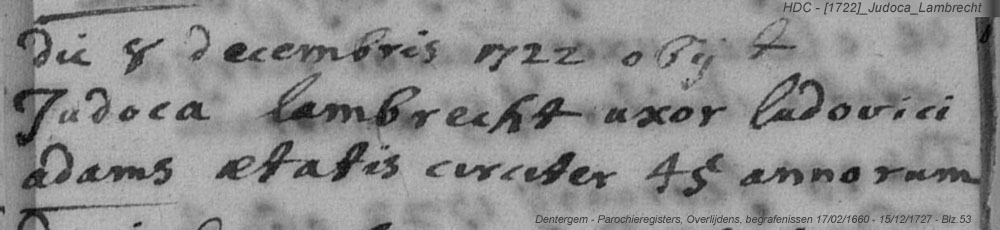 HDC - [1722]_Judoca_Lambrecht
die 8 decembris 1722 obij t
Judoca lambrecht uxor ludovici
adams ætatis circiter 45 annorum
Dentergem - Parochieregisters, Overlijdens, begrafenissen 17/02/1660 - 15/12/1727 - Blz.53